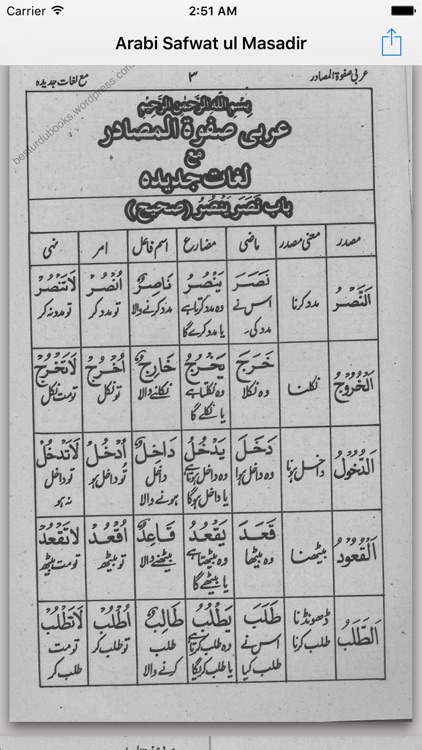 Carrier 2:51 AM
Arabi Safwat ul Masadir
عربی صفوة المصادر ۳ مع لغات جدیدہ
besturdubooks.wordpress.com
بِسْمِ اللهِ الرَّحْمٰنِ الرَّحِيْمِ
عربی صفوة المصادر
مع
لغات جدیدہ
باب نَصَرَ يَنْصُرُ (صحیح)
مصدر معنی مصدر ماضی مضارع اسم فاعل امر نہی
اَلنَّصْرُ مدد کرنا نَصَرَ يَنْصُرُ نَاصِرٌ اُنْصُرْ لَاتَنْصُرْ
اس نے وہ مدد کرتا ہے مدد کرنے والا تو مدد کر تو مدد نہ کر
مدد کی۔ یا مدد کرے گا
اَلْخُرُوْجُ نکلنا خَرَجَ يَخْرُجُ خَارِجٌ اُخْرُجْ لَاتَخْرُجْ
وہ نکلا وہ نکلتا ہے نکلنے والا تو نکل تو مت نکل
یا نکلے گا
اَلدُّخُوْلُ داخل ہونا دَخَلَ يَدْخُلُ دَاخِلٌ اُدْخُلْ لَاتَدْخُلْ
وہ داخل ہوا وہ داخل ہوتا ہے داخل تُو داخل ہو تو داخل
یا داخل ہوگا ہونے والا نہ ہو
اَلْقُعُوْدُ بیٹھنا قَعَدَ يَقْعُدُ قَاعِدٌ اُقْعُدْ لَاتَقْعُدْ
وہ بیٹھا وہ بیٹھتا ہے بیٹھنے والا تو بیٹھ تو مت بیٹھ
یا بیٹھے گا
اَلطَّلَبُ ڈھونڈنا طَلَبَ يَطْلُبُ طَالِبٌ اُطْلُبْ لَاتَطْلُبْ
طلب کرنا اس نے وہ طلب کرتا ہے طلب تو طلب کر تو مت
طلب کیا یا طلب کریگا کرنے والا طلب کر